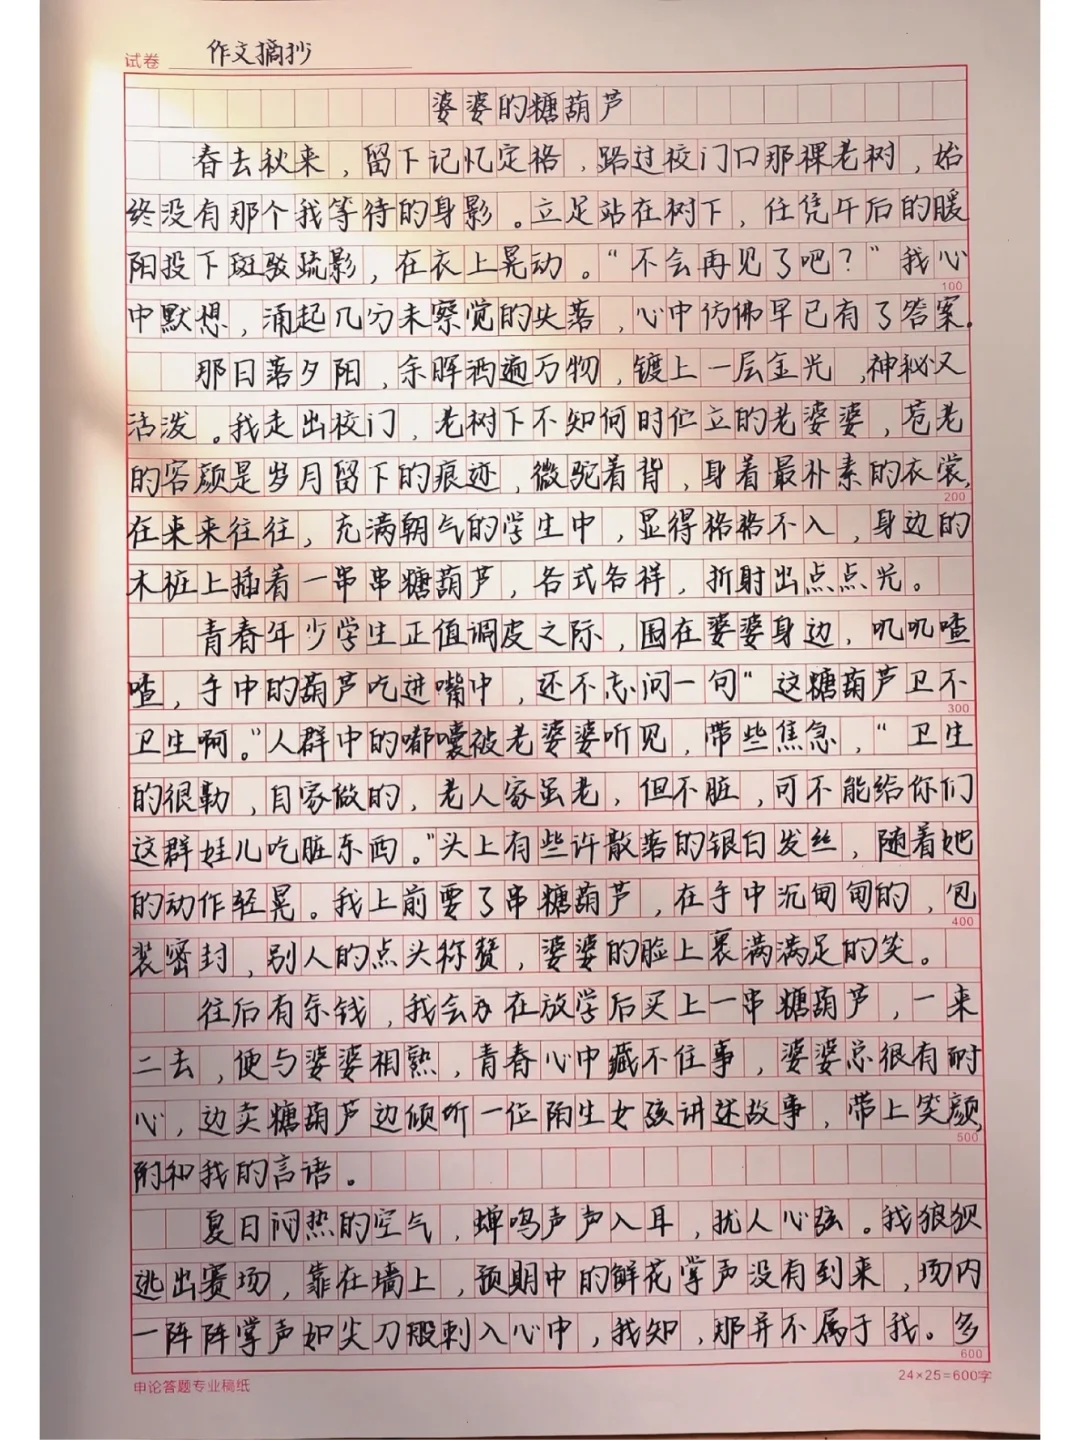 试卷 作文摘抄
婆婆的糖葫芦
春去秋来，留下记忆定格，路过校门口那棵老树，始
终没有那个我等待的身影。立足站在树下，任凭午后的暖
阳投下斑驳疏影，在衣上晃动。“不会再见了吧？”我心
100
中默想，涌起几分未察觉的失落，心中仿佛早已有了答案。
那日落夕阳，余晖洒遍万物，镀上一层金光，神秘又
活泼。我走出校门，老树下不知何时伫立的老婆婆，苍老
的容颜是岁月留下的痕迹，微驼着背，身着最朴素的衣裳，
200
在来来往往，充满朝气的学生中，显得格格不入，身边的
木桩上插着一串串糖葫芦，各式各样，折射出点点光。
青春年少学生正值调皮之际，围在婆婆身边，叽叽喳
喳，手中的葫芦吃进嘴中，还不忘问一句“这糖葫芦卫不
300
卫生啊。”人群中的嘟囔被老婆婆听见，带些焦急，“卫生
的很勒，自家做的，老人家虽老，但不脏，可不能给你们
这群娃儿吃脏东西。”头上有些许散落的银白发丝，随着她
的动作轻晃。我上前要了串糖葫芦，在手中沉甸甸的，包
400
装密封，别人的点头称赞，婆婆的脸上裹满满足的笑。
往后有余钱，我会在放学后买上一串糖葫芦，一来
二去，便与婆婆相熟，青春心中藏不住事，婆婆总很有耐
心，边卖糖葫芦边倾听一位陌生女孩讲述故事，带上笑颜，
500
附和我的言语。
夏日闷热的空气，蝉鸣声声入耳，扰人心弦。我狼狈
逃出赛场，靠在墙上，预期中的鲜花掌声没有到来，场内
一阵阵掌声如尖刀般刺入心中，我知，那并不属于我。多
600
申论答题专业稿纸 24×25=600字